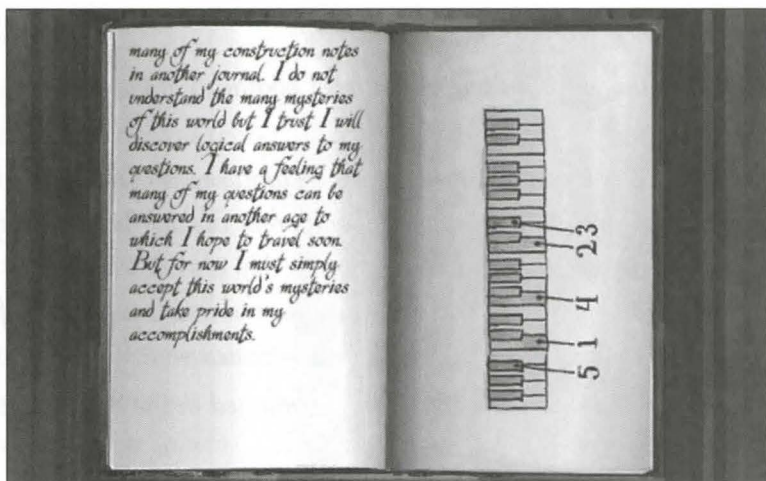 many of my construction notes
in another journal. I do not
understand the many mysteries
of this world but I trust I will
discover logical answers to my
questions. I have a feeling that
many of my questions can be
answered in another age to
which I hope to travel soon.
But for now I must simply
accept this world's mysteries
and take pride in my
accomplishments.
5 1 4 2 3